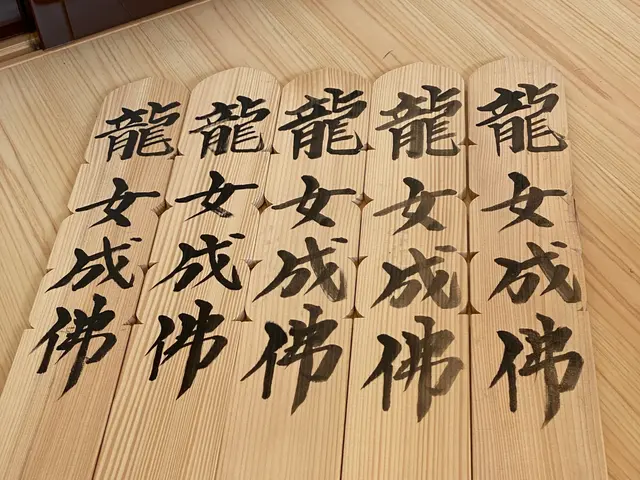 龍女成佛
龍女成佛
龍女成佛
龍女成佛
龍女成佛